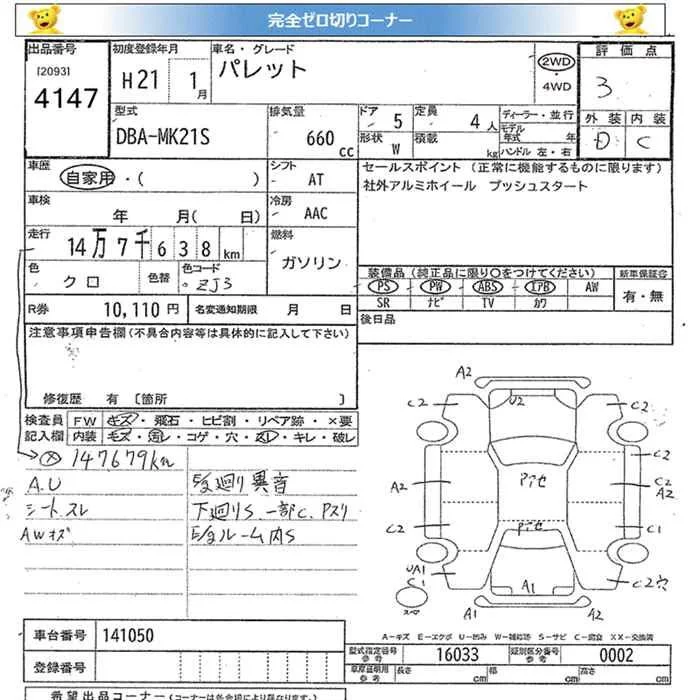 完全ゼロ切りコーナー
出品番号
[2093]
4147
初度登録年月
H21 1月
車名・グレード
パレット
2WD
・
4WD
評価点
3
外装 内装
D C
型式
DBA-MK21S
排気量
660 cc
ドア 5
形状 W
定員 4人
積載 kg
ディーラー・並行
モデル年式 年
ハンドル 左・右
車歴
自家用・( )
シフト
AT
セールスポイント(正常に機能するものに限ります)
社外アルミホイール プッシュスタート
車検
年 月( 日)
冷房
AAC
走行
14万7千638km
燃料
ガソリン
色
クロ
色替
色コード
ZJ3
装備品(純正品に限り○をつけてください)
新車保証書
PS PW ABS エアB AW
SR ナビ TV カワ
有・無
R券 10,110円
名変通知期限 月 日
後日品
注意事項申告欄(不具合内容等は具体的に記入して下さい)
修復歴 有 〔箇所 〕
検査員
記入欄
FW キズ・飛石・ヒビ割・リペア跡・×要
内装 キズ・汚レ・コゲ・穴・スレ・キレ・破レ
147679km
A.U
シートスレ
AWキズ
E/g廻り異音
下廻りS 一部C、Pスリ
E/gルーム内S
A2
C2
U2
C2
C2
Pアセ
A2
C2
A2
C2
Pアセ
C1
UA1
C1
C2穴
スペア
A1
A1
A2
A-キズ E-エクボ U-凹み W-補修跡 S-サビ C-腐食 XX-交換済
車台番号
141050
登録番号
型式指定番号
参考
16033
類別区分番号
参考
0002
車庫証明用
参考
長さ cm
幅 cm
高さ cm
希望出品コーナー(コーナーは各会場により異なります)